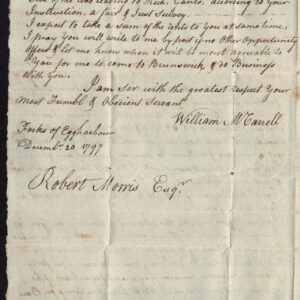 Out of the Line leading to Rich. Gants, according to your
Instruction, a fair & Just Survey.
I expect to take a sum of the debts to You at same time,
I pray You will write to me by post if no Other Opportunity
Offers & let me know when it will be most agreeable to
You for me to come to Brunswick & do Business
With You.
I am Sir with the greatest respect Your
Most Humbl & Obedient Servant
William McCarrell
Forks of Eggharbour
Decembr. 20 1797
Robert Morris Esqr.